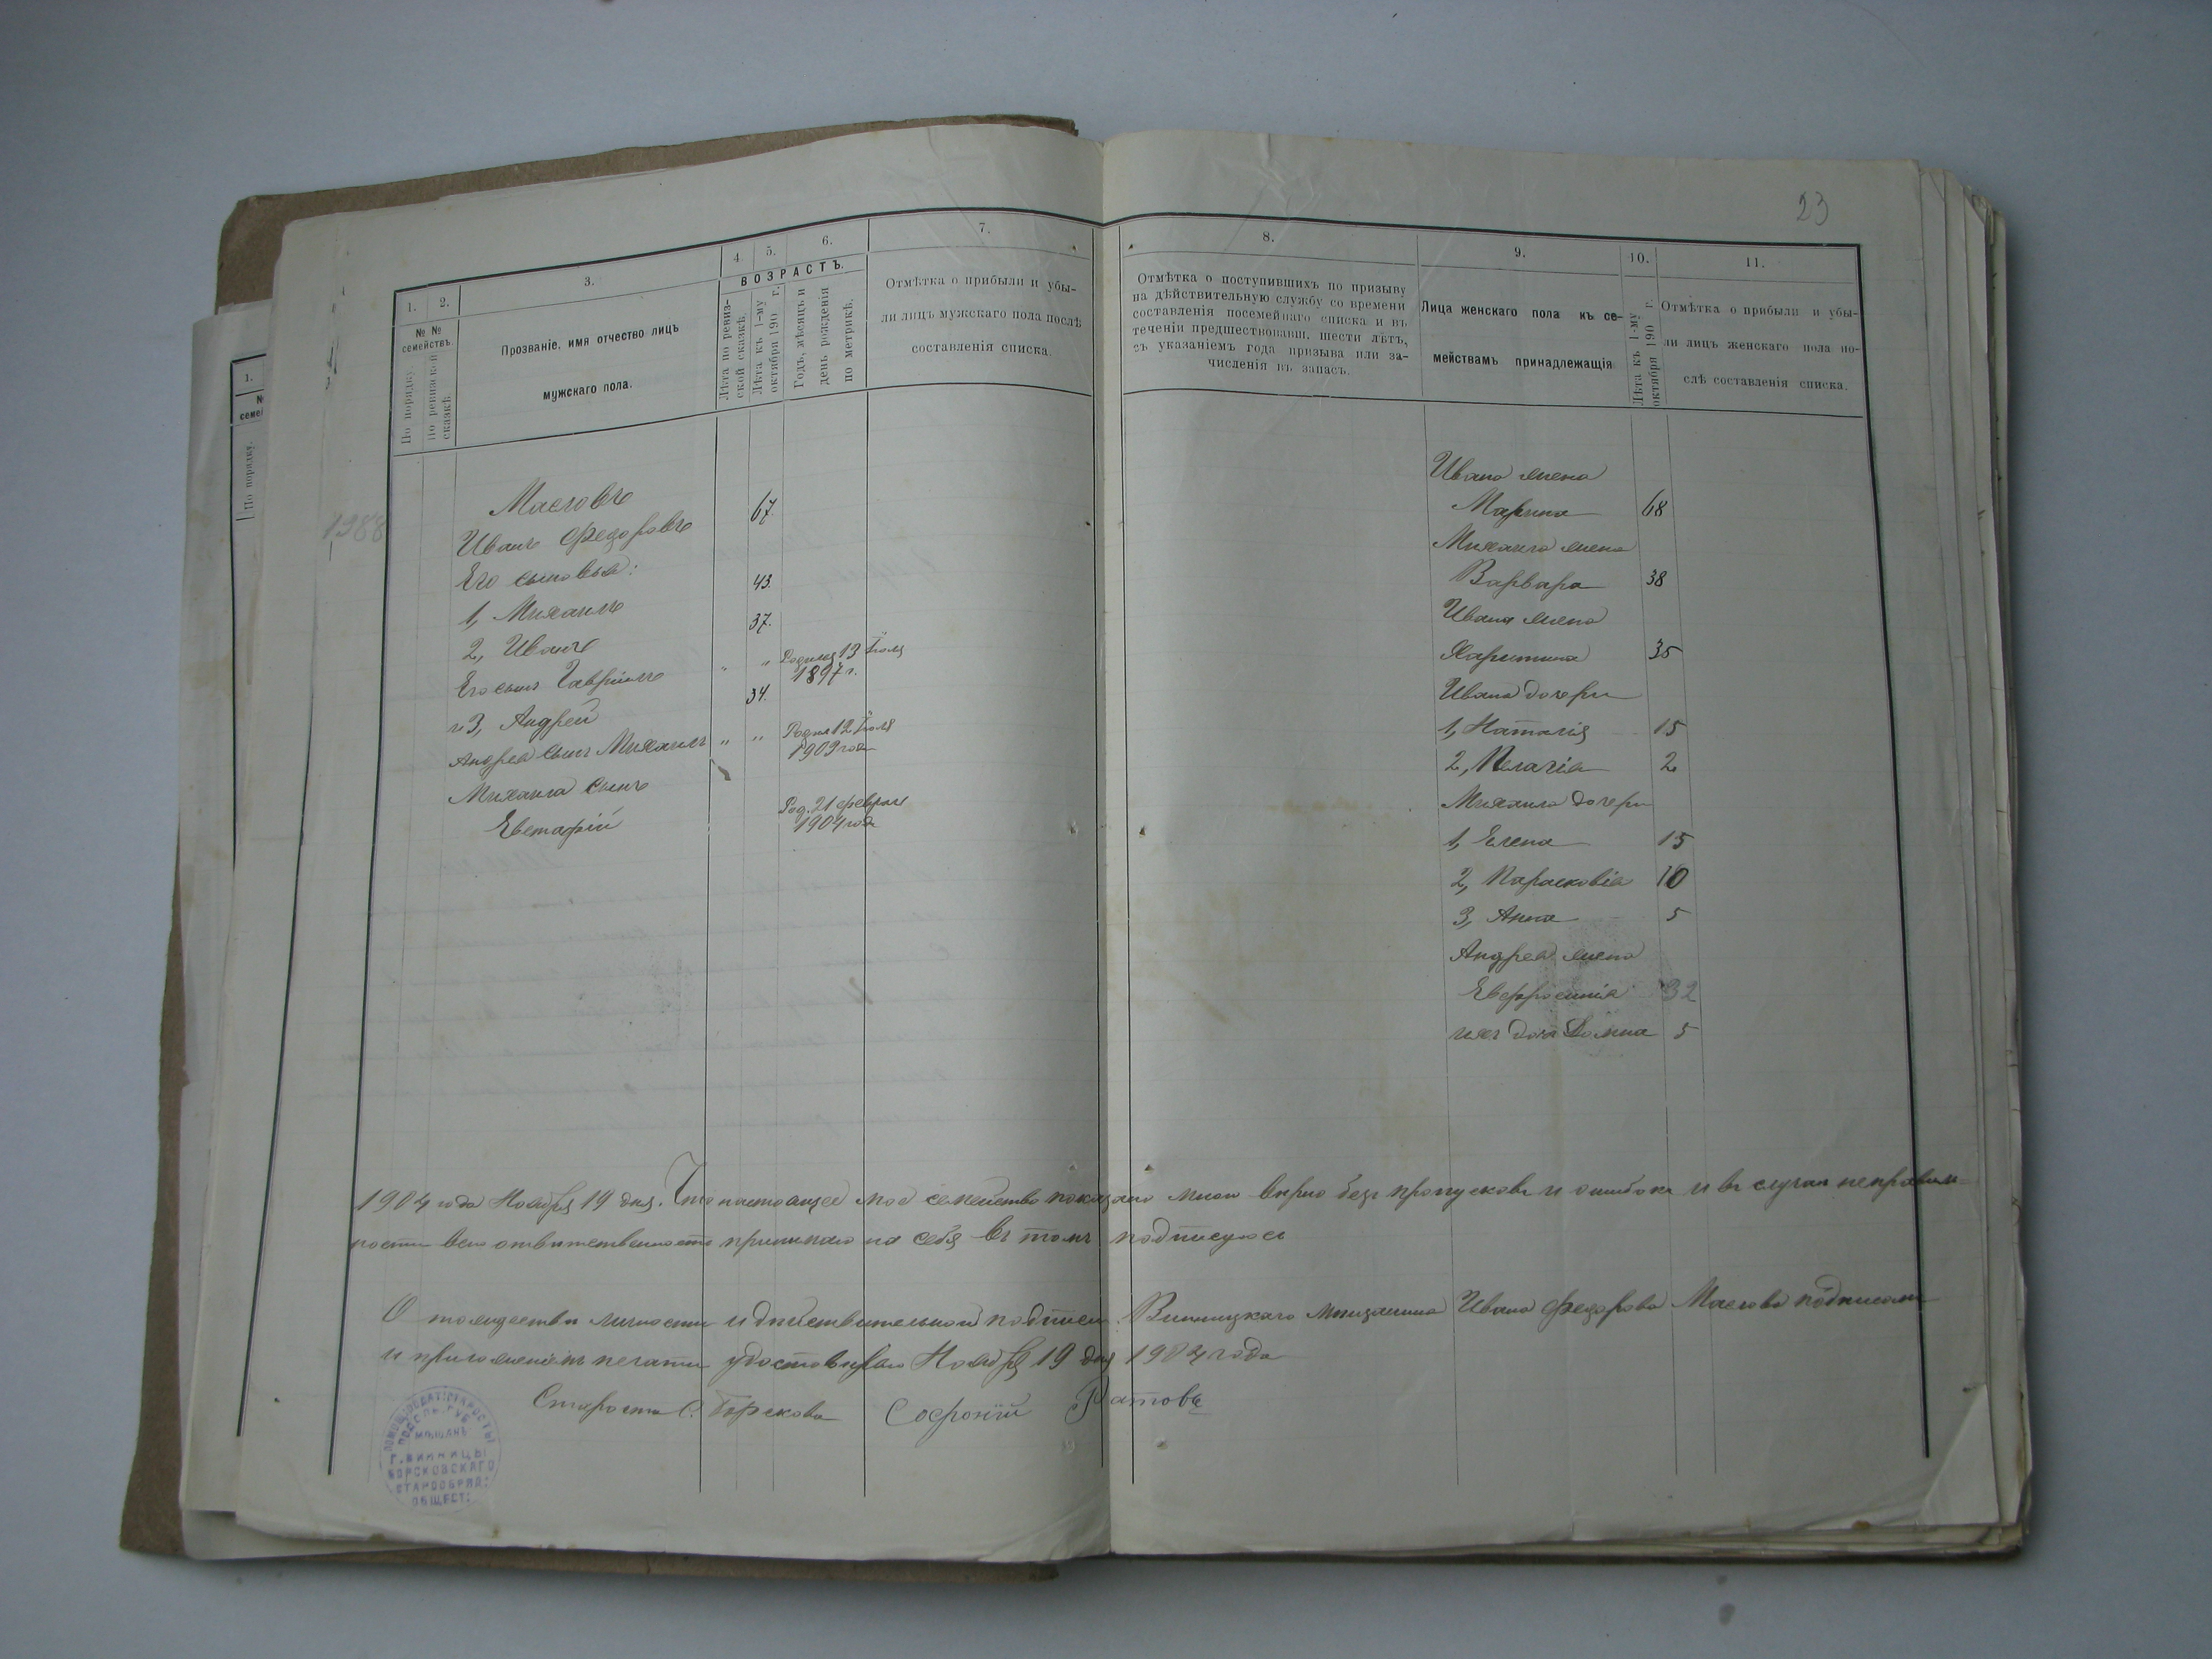 23
1.
2.
3.
4
5.
6.
7.
8.
9.
10.
11.
№ №
семействъ.
По порядку.
По ревизской
сказкѣ.
Прозваніе, имя отчество лицъ
мужскаго пола.
ВОЗРАСТЪ.
Лѣта по ревиз-
ской сказкѣ.
Лѣта къ 1-му
октября 190 г.
Годъ, мѣсяцъ и
день рожденія
по метрикѣ.
Отмѣтка о прибыли и убы-
ли лицъ мужскаго пола послѣ
составленія списка.
Отмѣтка о поступившихъ по призыву
на дѣйствительную службу со времени
составленія посемейнаго списка и въ
теченіи предшествовавш. шести лѣтъ,
съ указаніемъ года призыва или за-
численія въ запасъ.
Лица женскаго пола къ се-
мействамъ принадлежащія
Лѣта къ 1-му
октября 190 г.
Отмѣтка о прибыли и убы-
ли лицъ женскаго пола по-
слѣ составленія списка.
1.
семей
По порядку.
1988
Масловъ
Иванъ Федоровъ 67.
Его сыновья:
1, Михаилъ 43.
2, Иванъ 37.
Его сынъ Гавріилъ " " Родился 13 Іюля
1897 г.
и 3, Андрей 34.
Андрея сынъ Михаилъ " " Родил 12 Іюля
1903 года
Михаила сынъ
Евстафій Род. 21 февраля
1904 года
Ивана жена
Марина 68
Михаила жена
Варвара 38
Ивана жена
Харитина 35
Ивана дочери
1, Наталія 15
2, Пелагія 2
Михаила дочери
1, Елена 15
2, Парасковія 10
3, Анна 5
Андрея жена
Евфросинія 32
ихъ дочь Домна 5
1904 года Ноября 19 дня. Что настоящее мое семейство показано мною вѣрно безъ пропусковъ и ошибокъ и въ случаи неправиль-
ности всю отвѣтственность принимаю на себя въ томъ подписуюсь
О тождествѣ личности и дѣйствительной подписи Винницкаго мѣщанина Ивана Федорова Маслова подписомъ
и приложеніемъ печати удостовѣряю Ноября 19 дня 1904 года
Староста С. Борскова Софроній Ратовъ
ПОМОЩ:
СТАРОСТЫ
ПОДОЛЬ. ГУБ.
МѢЩАНЪ
Г. ВИННИЦЫ
БОРСКОВСКАГО
СТАРООБРЯД:
ОБЩЕСТ: